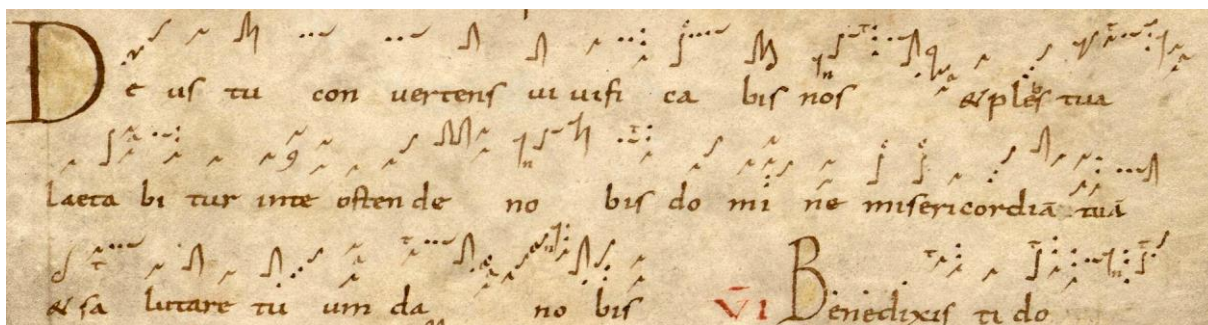 Deus tu convertens vivificabis nos & plebs tua
laetabitur in te ostende nobis domine misericordiā tuā
& salutare tuum da nobis V̄I Benedixisti do